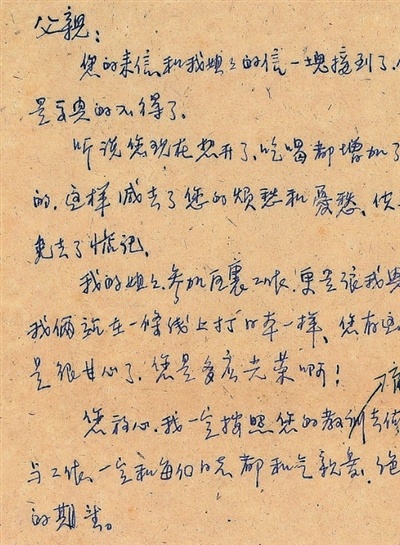 父親:
您的来信和我姐々的信一塊接到了、
是高興的不得了。
听说您现在想开了、吃喝都增加了
的、这样减去了您的烦愁和憂愁、
免去了惦记、
我的姐々参加 工作、更是 我
我俩就在一條线上打日本一样、您
是很甘心了、您是多麽光荣啊!
您放心、我一定按照您的教训去
与工作、一定和每们同志都和气親爱、绝
的期望。